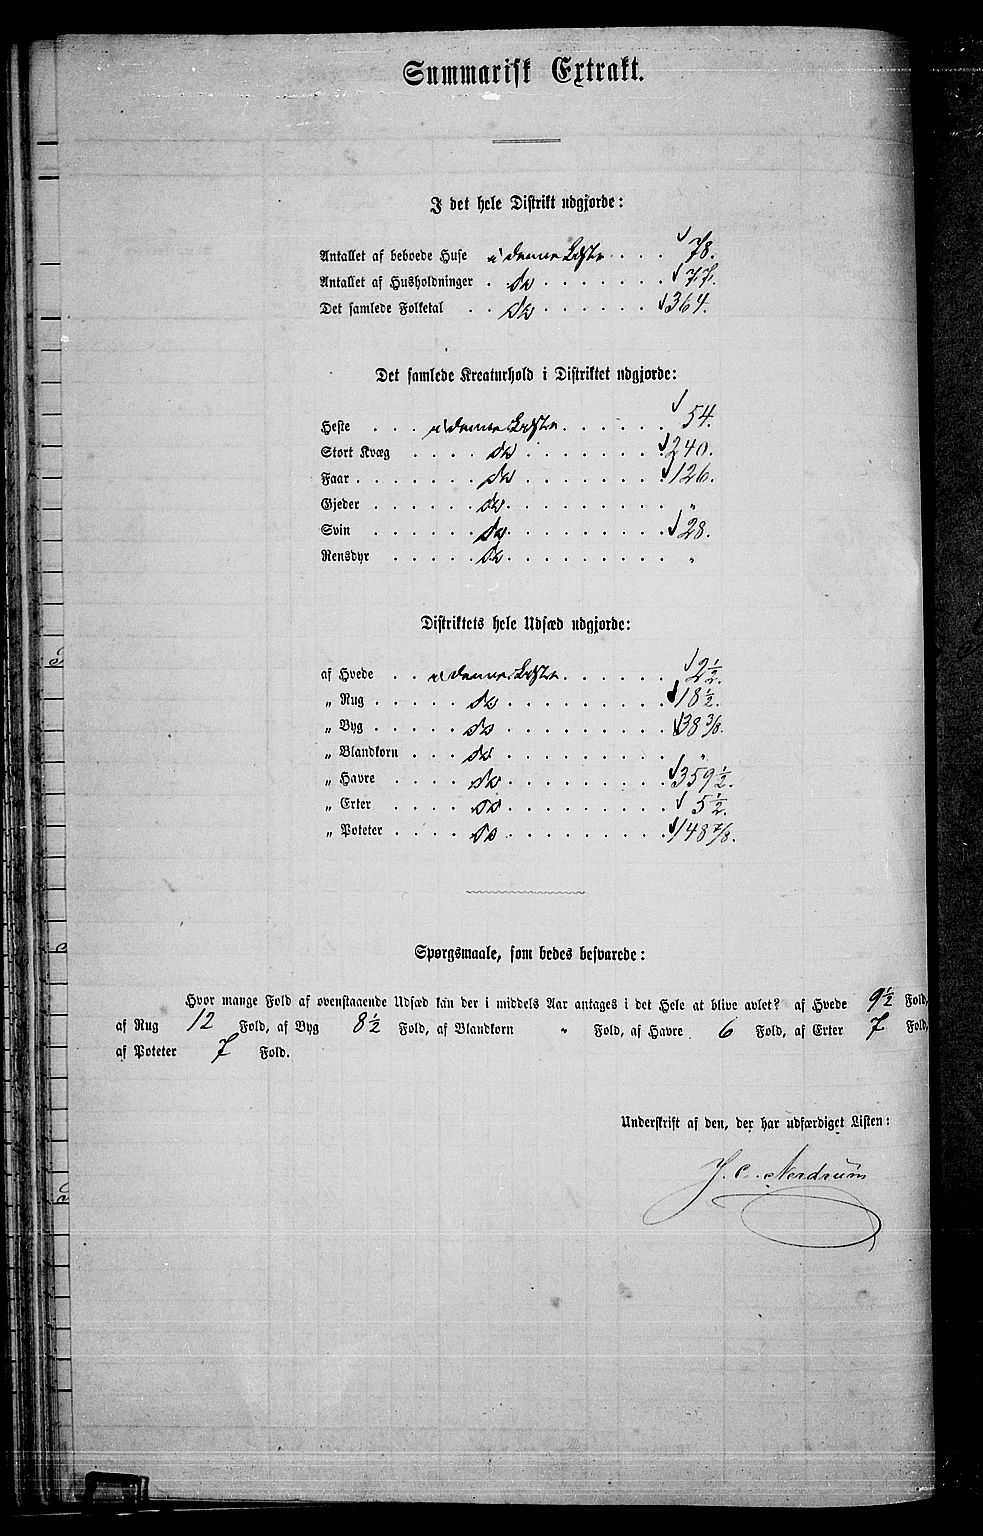 Summarisk Extrakt.
I det hele Distrikt udgjorde:
Antallet af beboede Huse i denne Liste . . . . 78.
Antallet af Husholdninger . do . . . . . . . 77.
Det samlede Folketal . . do . . . . . . 364.
Det samlede Kreaturhold i Distriktet udgjorde:
Heste . . . i denne Liste . . . . . . 54.
Stort Kvæg . . . . do . . . . . . . . 240.
Faar . . . . . . do . . . . . . . . 126.
Gjeder . . . . . do . . . . . . . . "
Svin . . . . . do . . . . . . . . 28.
Rensdyr . . . . do . . . . . . . . "
Distriktets hele Udsæd udgjorde:
af Hvede . . i denne Liste . . . . . . 2 1/2.
„ Rug . . . . . do . . . . . . . . 18 1/2.
„ Byg . . . . . do . . . . . . . . 38 3/8.
„ Blandkorn . . . do . . . . . . . . "
„ Havre . . . . do . . . . . . . . 359 1/2.
„ Erter . . . . do . . . . . . . . 5 1/2.
„ Poteter . . . . do . . . . . . . . 148 7/8.
Spørgsmaale, som bedes besvarede:
Hvor mange Fold af ovenstaaende Udsæd kan der i middels Aar antages i det Hele at blive avlet? af Hvede 9 1/2 Fold,
af Rug 12 Fold, af Byg 8 1/2 Fold, af Blandkorn " Fold, af Havre 6 Fold, af Erter 7 Fold,
af Poteter 7 Fold.
Underskrift af den, der har udfærdiget Listen:
J. C. Nerdrum